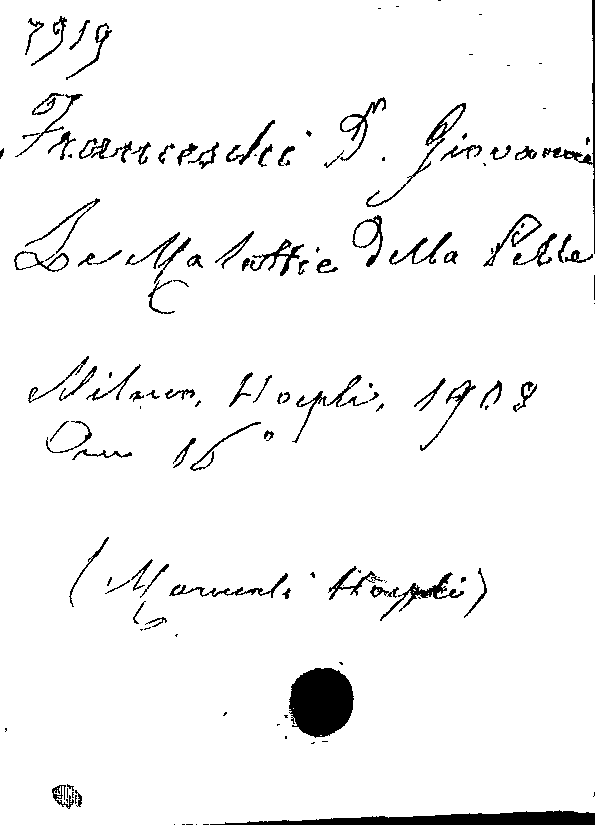 7919
Franceschi Dr. Giovanni
Le Malattie della Pelle
Milano, Hoepli, 1908
16°
(Manuali Hoepli)